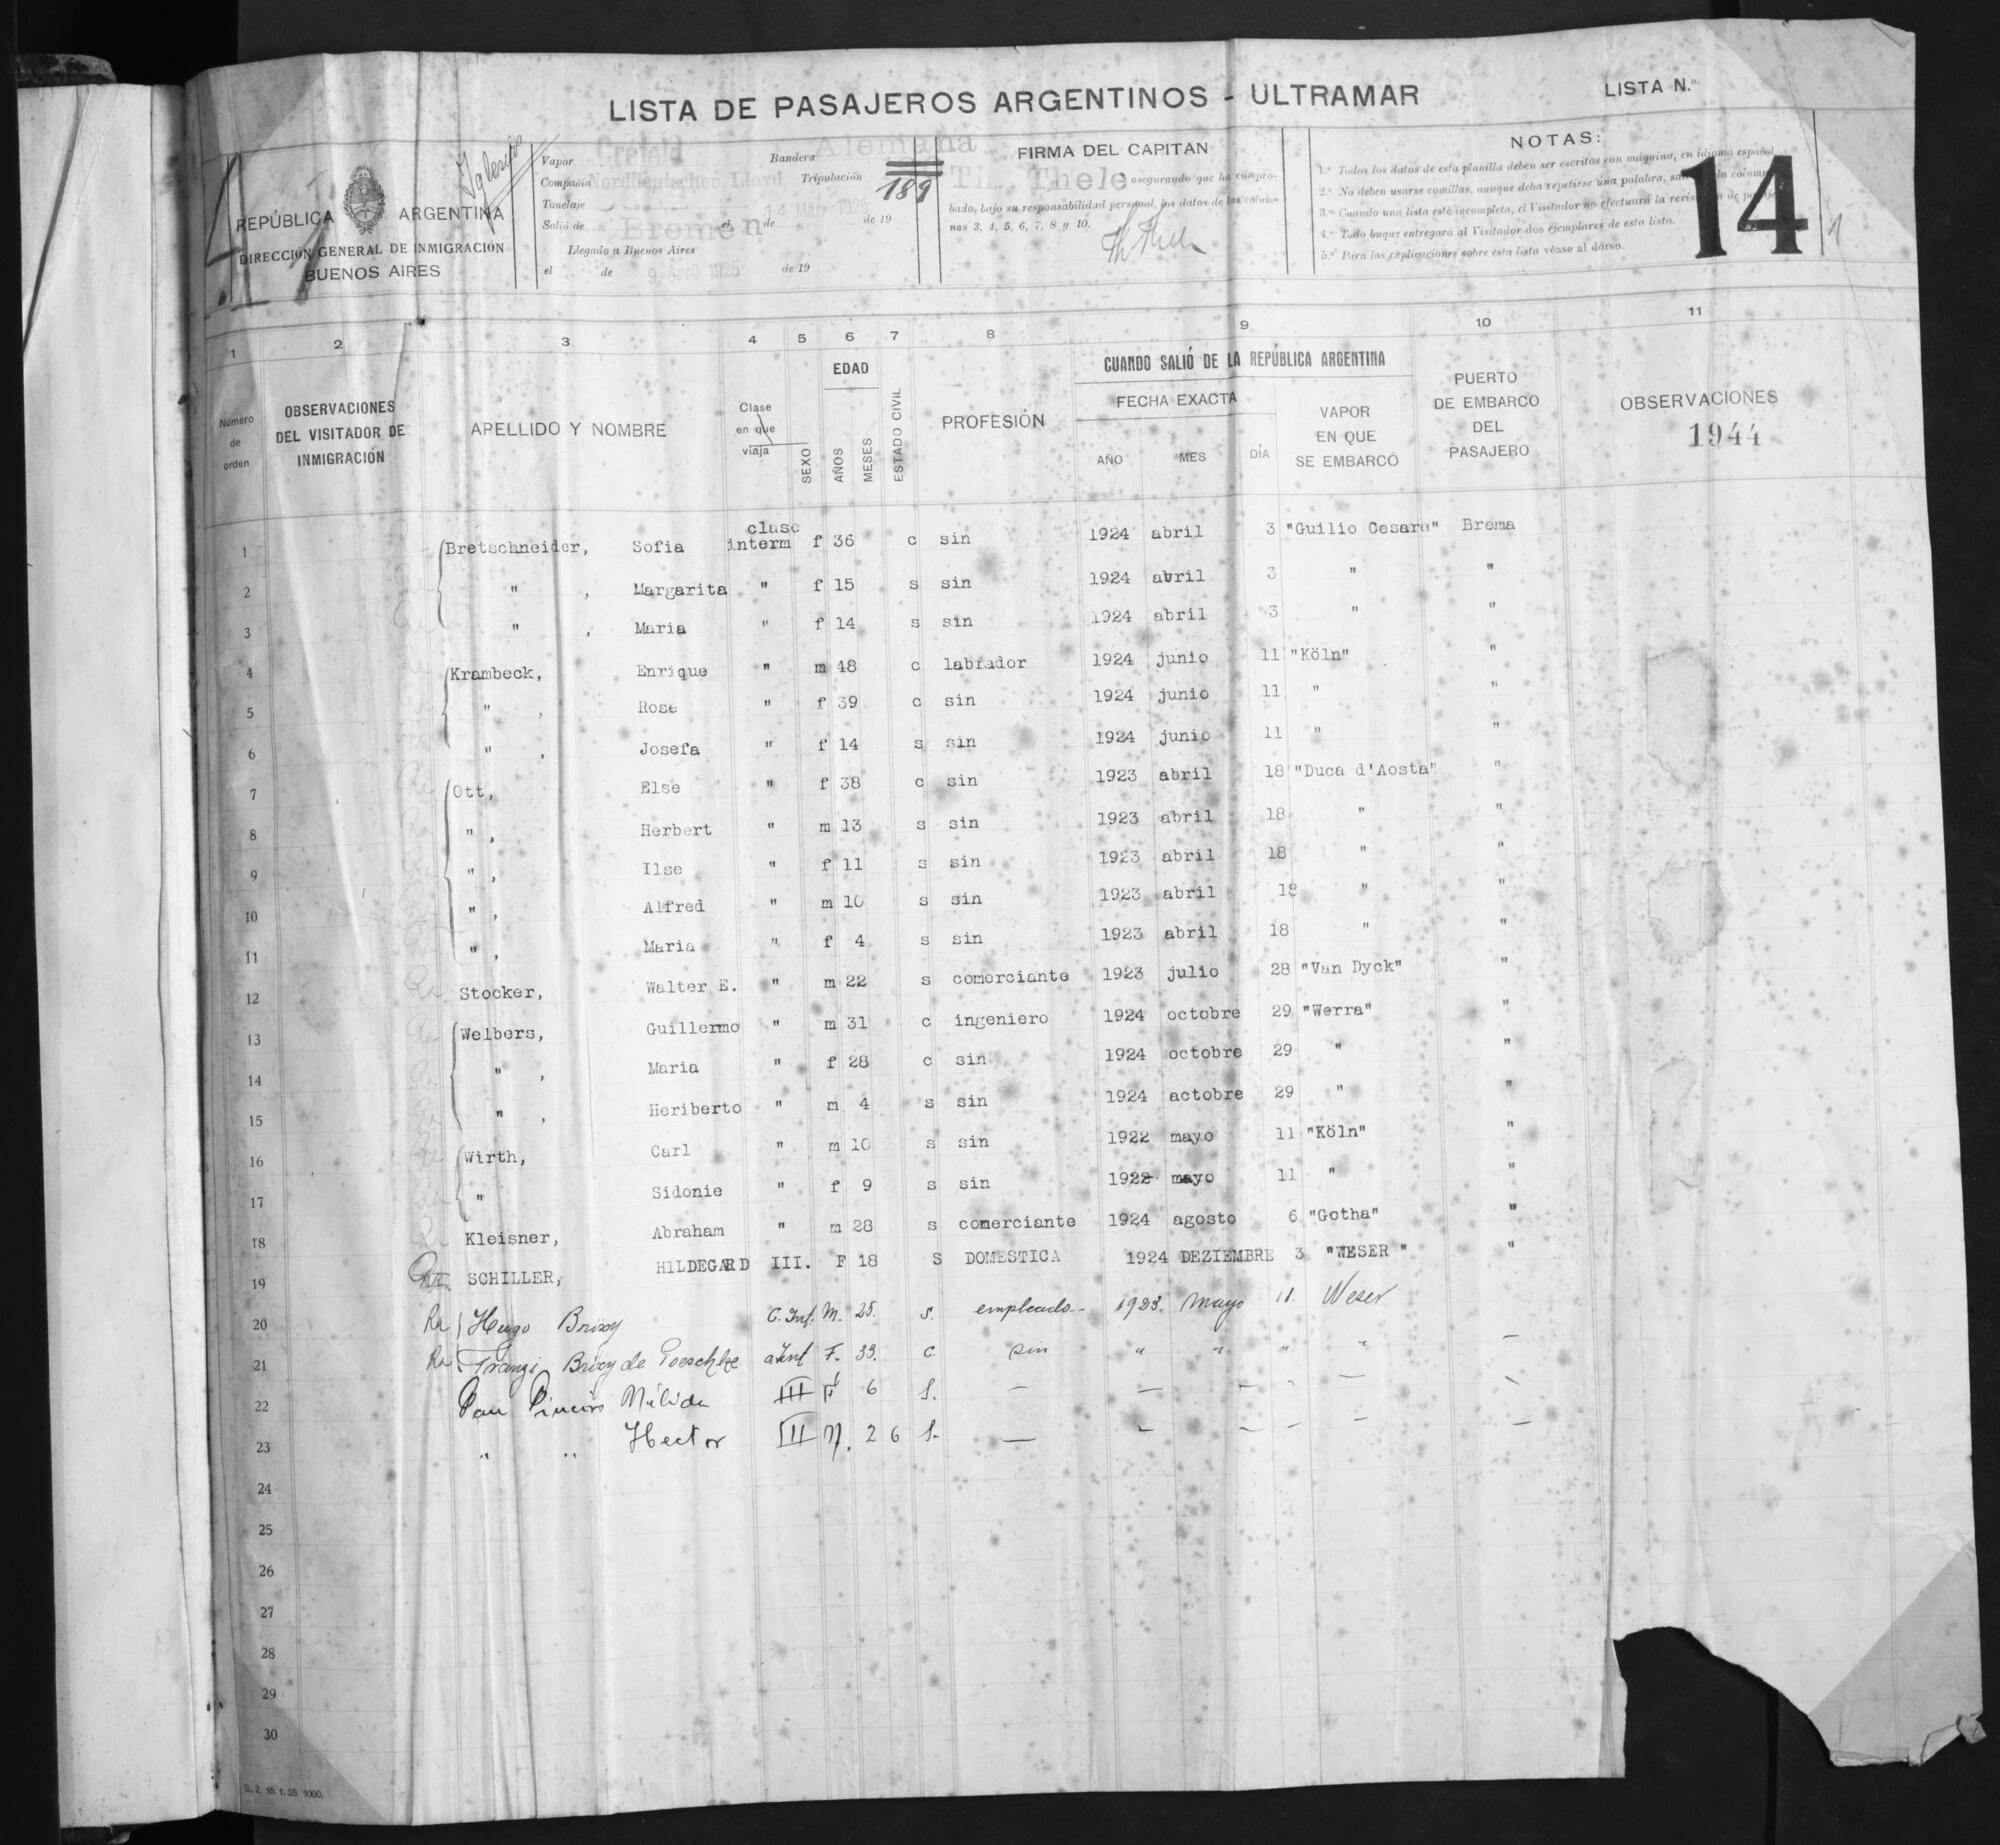 LISTA DE PASAJEROS ARGENTINOS - ULTRAMAR
LISTA N.º
REPÚBLICA ARGENTINA
DIRECCIÓN GENERAL DE INMIGRACIÓN
BUENOS AIRES
Vapor Crefeld Bandera Alemana
Compañia Norddeutscher Lloyd Tripulación 189
Tonelaje
Salió de Bremen el 14 de März 1925 de 19
Llegado a Buenos Aires
el de 9. April 1925 de 19
FIRMA DEL CAPITAN
Th. Thele asegurando que ha compro-
bado, bajo su responsabilidad personal, los datos de las colum-
nas 3, 4, 5, 6, 7, 8 y 10.
Th Thele
NOTAS:
1.ª Todos los datos de esta planilla deben ser escritos con máquina, en idioma español
2.ª No deben usarse comillas, aunque deba repetirse una palabra, la column
3.ª Cuando una lista esté incompleta, el Visitador no efectuará la de
4.ª Todo buque entregará al Visitador dos ejemplares de esta lista.
5.ª Para las explicaciones sobre esta lista véase al dorso.
14
1 2 3 4 5 6 7 8 9 10 11
Número de orden
OBSERVACIONES DEL VISITADOR DE INMIGRACIÓN
APELLIDO Y NOMBRE
Clase en que viaja
SEXO
EDAD
AÑOS
MESES
ESTADO CIVIL
PROFESIÓN
CUANDO SALIÓ DE LA REPÚBLICA ARGENTINA
FECHA EXACTA
AÑO MES DÍA
VAPOR EN QUE SE EMBARCÓ
PUERTO DE EMBARCO DEL PASAJERO
OBSERVACIONES
1944
clase
1 Bretschneider, Sofia interm f 36 c sin 1924 abril 3 "Guilio Cesare" Brema
2 " , Margarita " f 15 s sin 1924 abril 3 " "
3 " , Maria " f 14 s sin 1924 abril 3 " "
4 Krambeck, Enrique " m 48 c labrador 1924 junio 11 "Köln" "
5 " , Rose " f 39 c sin 1924 junio 11 " "
6 " , Josefa " f 14 s sin 1924 junio 11 " "
7 Ott, Else " f 38 c sin 1923 abril 18 "Duca d'Aosta" "
8 " , Herbert " m 13 s sin 1923 abril 18 " "
9 " , Ilse " f 11 s sin 1923 abril 18 " "
10 " , Alfred " m 10 s sin 1923 abril 18 " "
11 " , Maria " f 4 s sin 1923 abril 18 " "
12 Stocker, Walter E. " m 22 s comerciante 1923 julio 28 "Van Dyck" "
13 Welbers, Guillermo " m 31 c ingeniero 1924 octobre 29 "Werra" "
14 " , Maria " f 28 c sin 1924 octobre 29 " "
15 " , Heriberto " m 4 s sin 1924 actobre 29 " "
16 Wirth, Carl " m 10 s sin 1922 mayo 11 "Köln" "
17 " Sidonie " f 9 s sin 1922 mayo 11 " "
18 Kleisner, Abraham " m 28 s comerciante 1924 agosto 6 "Gotha" "
19 SCHILLER, HILDEGARD III. F 18 S DOMESTICA 1924 DEZIEMBRE 3 "WESER" "
20 Ra Hugo Brixy C. Int. M. 25. s. empleado 1923. Mayo 11. Weser
21 Ra Franzi Brixy de Poeschke Int F. 33. c. sin " " " " —
22 Nélida III F 6 S. — — — — —
23 " " Hector III M. 2 6 S. — — — — — —
24
25
26
27
28
29
30
S. 2. 15. 1. 25. 1000.